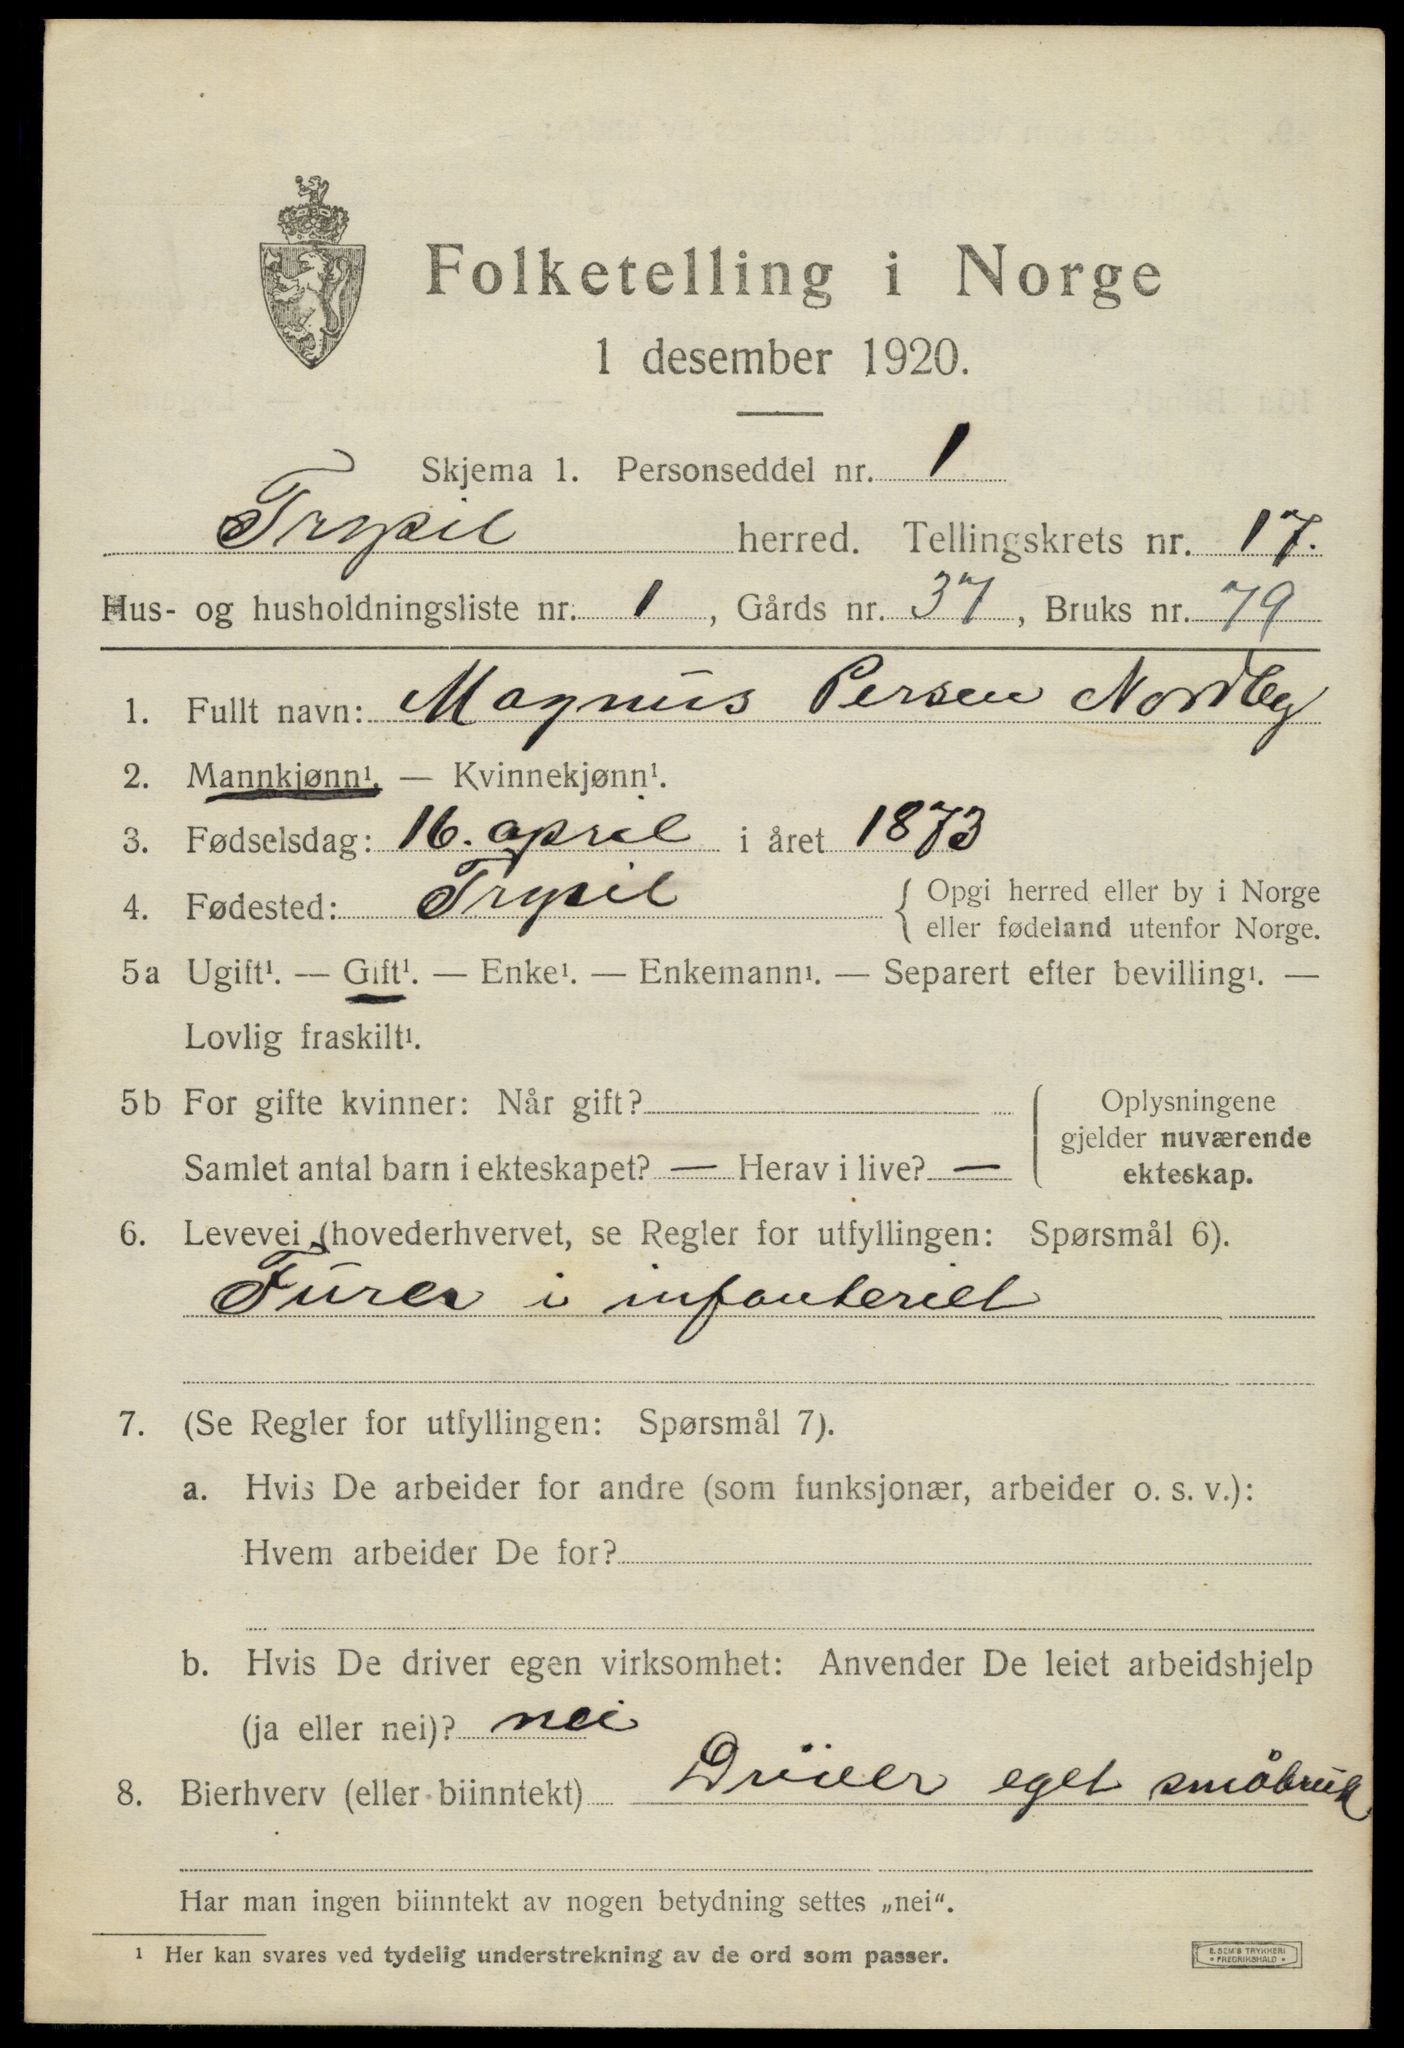 Folketelling i Norge
1 desember 1920.
Skjema 1. Personseddel nr. 1
Trysil herred. Tellingskrets nr. 17.
Hus- og husholdningsliste nr. 1, Gårds nr. 37, Bruks nr. 79
1. Fullt navn: Magnus Persen Nordby
2. Mannkjønn¹. — Kvinnekjønn¹.
3. Fødselsdag: 16. april i året 1873
4. Fødested: Trysil { Opgi herred eller by i Norge
eller fødeland utenfor Norge.
5a Ugift¹. — Gift¹. — Enke¹. — Enkemann¹. — Separert efter bevilling¹. —
Lovlig fraskilt¹.
5b For gifte kvinner: Når gift?
Samlet antal barn i ekteskapet? — Herav i live? —
Oplysningene
gjelder nuværende
ekteskap.
6. Levevei (hovederhvervet, se Regler for utfyllingen: Spørsmål 6).
Furer i infanteriet
7. (Se Regler for utfyllingen: Spørsmål 7).
a. Hvis De arbeider for andre (som funksjonær, arbeider o. s. v.):
Hvem arbeider De for?
b. Hvis De driver egen virksomhet: Anvender De leiet arbeidshjelp
(ja eller nei)? nei
8. Bierhverv (eller biinntekt) Driver eget småbruk
Har man ingen biinntekt av nogen betydning settes „nei“.
¹ Her kan svares ved tydelig understrekning av de ord som passer.
E. SEM'S TRYKKERI
FREDRIKSHALD